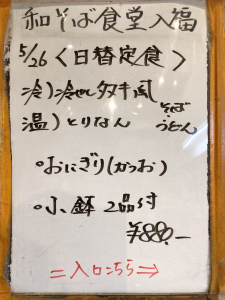 和そば食堂入福
5/26〈日替定食〉
冷)冷せいタヌキ風
そば
温)とりなん うどん
・おにぎり(かつお)
・小鉢 2品付
¥880.-
=入口こちら⇒